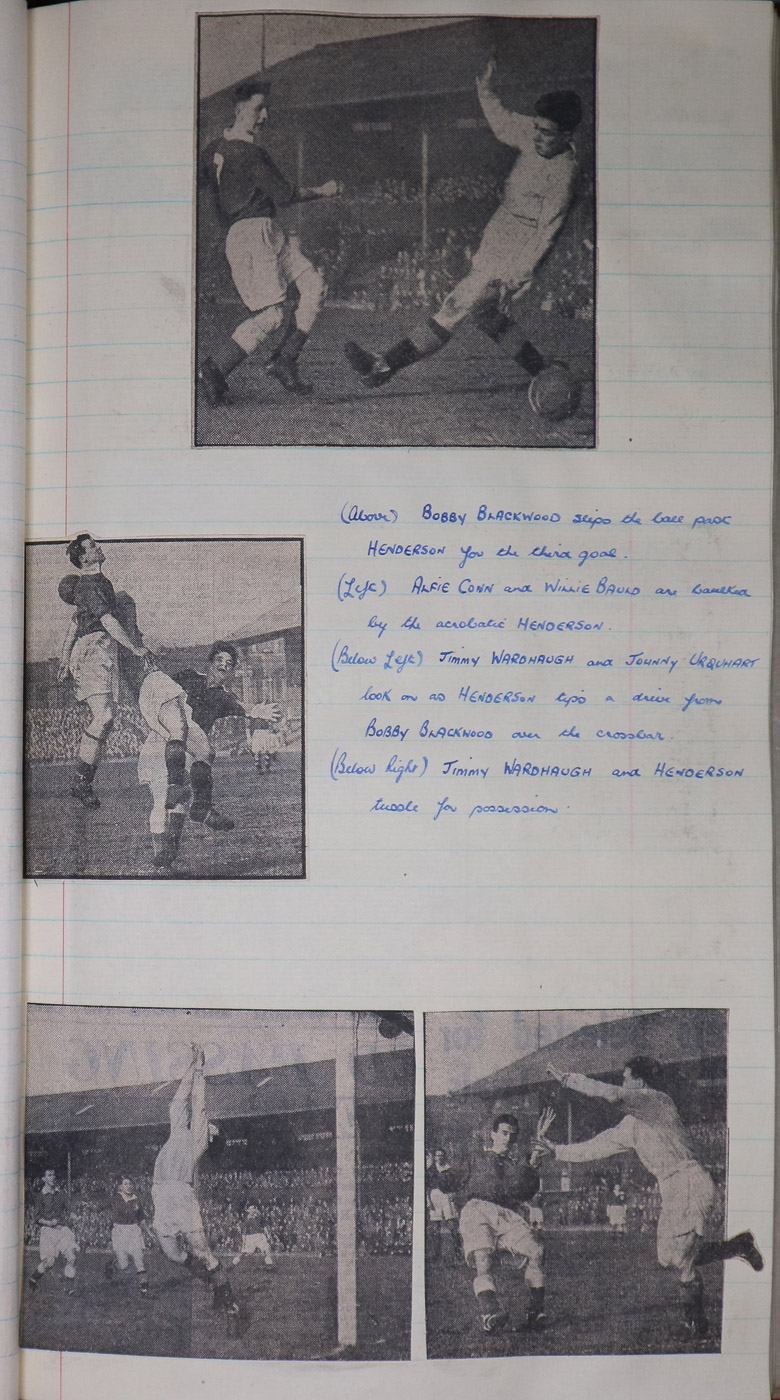 (Above) BOBBY BLACKWOOD slips the ball past
HENDERSON for the third goal.
(Left) ALFIE CONN and WILLIE BAULD are baulked
by the acrobatic HENDERSON.
(Below Left) JIMMY WARDHAUGH and JOHNNY URQUHART
look on as HENDERSON tips a drive from
BOBBY BLACKWOOD over the crossbar.
(Below Right) JIMMY WARDHAUGH and HENDERSON
tussle for possession.